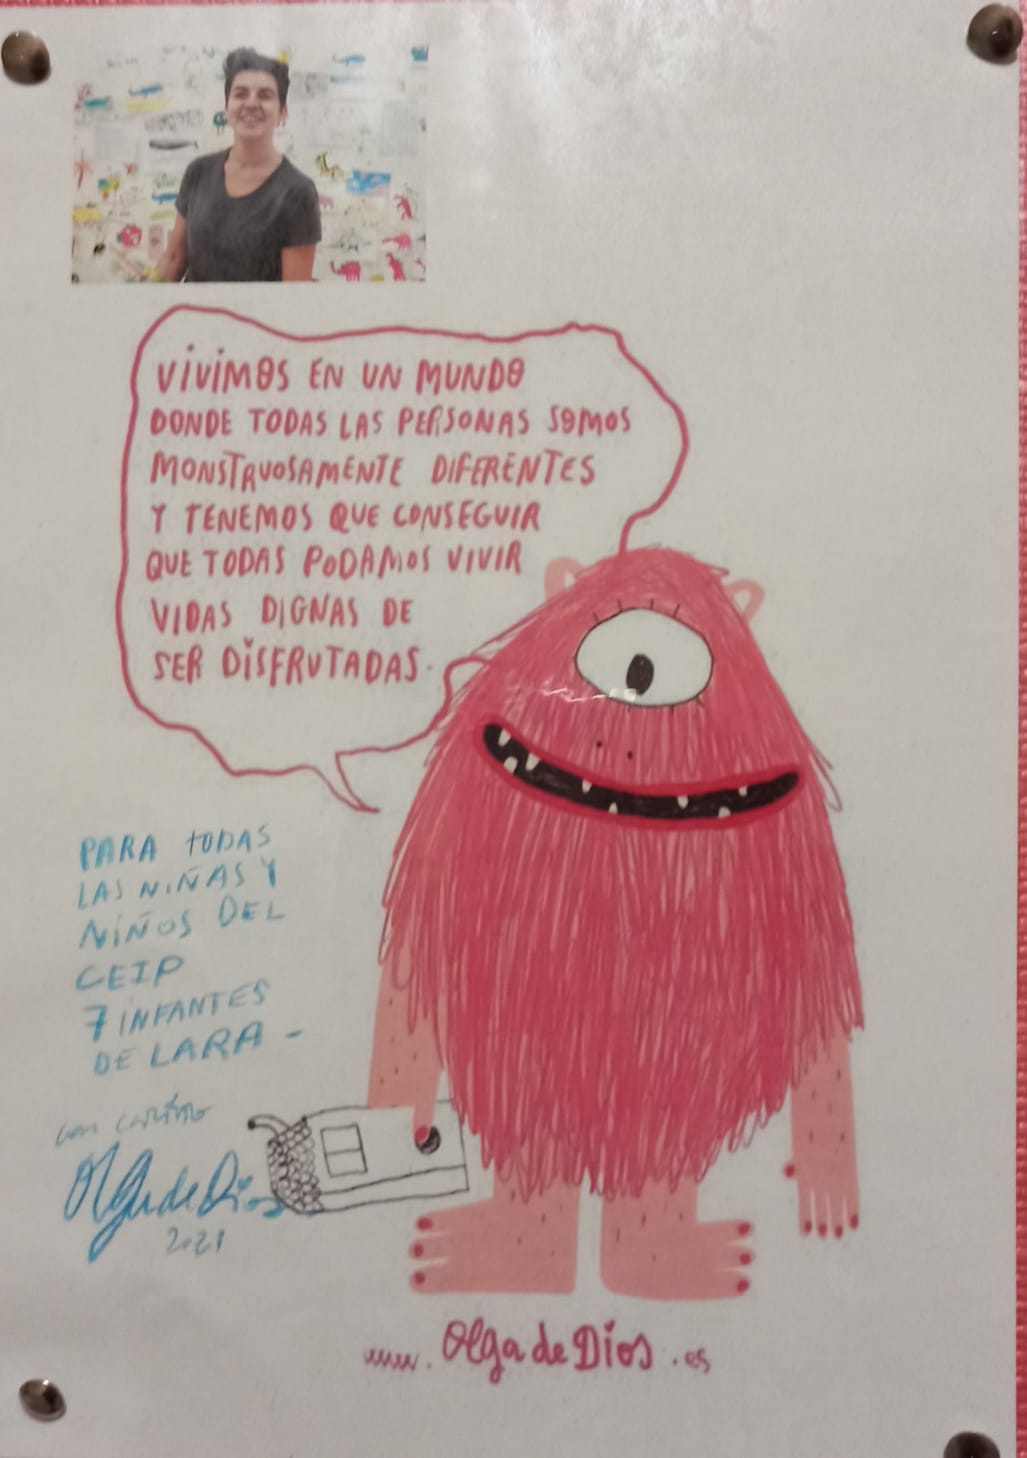 ViViMOS EN UN MUNDO
DONDE TODAS LAS PERSONAS SOMOS
MONSTRUOSAMENTE DIFERENTES
Y TENEMOS QUE CONSEGUIR
QUE TODAS PODAMOS VIVIR
VIDAS DIGNAS DE
SER DiSFRUTADAS.
PARA TODAS
LAS NIÑAS Y
NIÑOS DEL
CEIP
7 INFANTES
DE LARA -
con cariño
Olga de Dios
2021
www. Olga de Dios .es